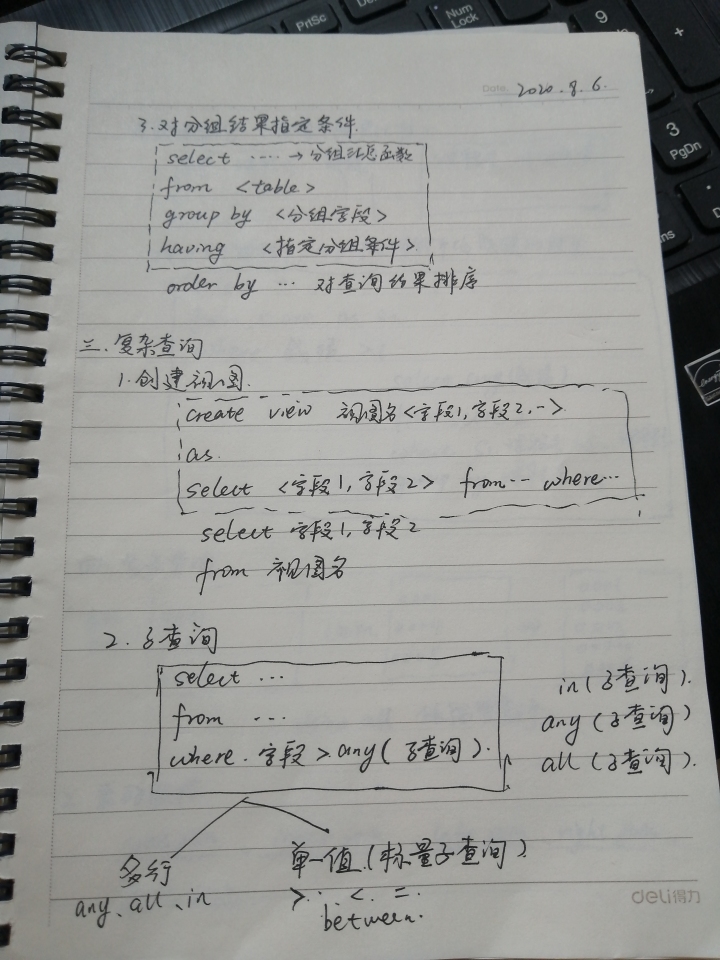 PrtSc
Num
Lock
9
+
3
PgDn
Date.
2020.8.6.
3.对分组结果指定条件.
select ····→分组汇总函数
from <table>
group by <分组字段>
having <指定分组条件>.
order by ··· 对查询结果排序
三.复杂查询
1.创建视图.
create view 视图名<字段1,字段2,··>
as.
select <字段1,字段2> from··· where···
select 字段1,字段2
from 视图名
2.子查询
select ···
from ···
where.字段>any(子查询).
in(子查询).
any(子查询)
all(子查询).
多行
any、all、in
单一值.(标量子查询).
>.. <. =.
between.
deli得力